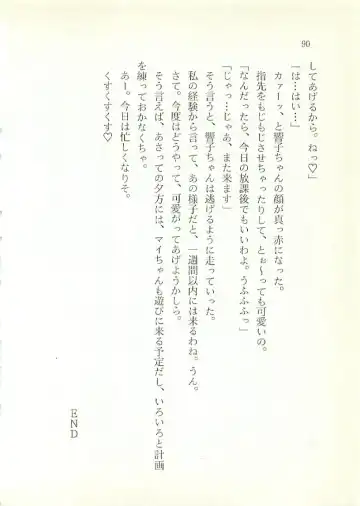 90
してあげるから。ねっ♡」
「は…はい…」
カァーッ、と響子ちゃんの顔が真っ赤になった。
指先をもじもじさせちゃったりして、とぉ～っても可愛いの。
「なんだったら、今日の放課後でもいいわよ。うふふふっ」
「じゃっ…じゃあ、また来ます」
そう言うと、響子ちゃんは逃げるように走っていった。
私の経験から言って、あの様子だと、一週間以内には来るわね。うん。
さて。今度はどうやって、可愛がってあげようかしら。
そう言えば、あさっての夕方には、マイちゃんも遊びに来る予定だし、いろいろと計画
を練っておかなくちゃ。
あー。今日は忙しくなりそ。
くすくすくす♡
END